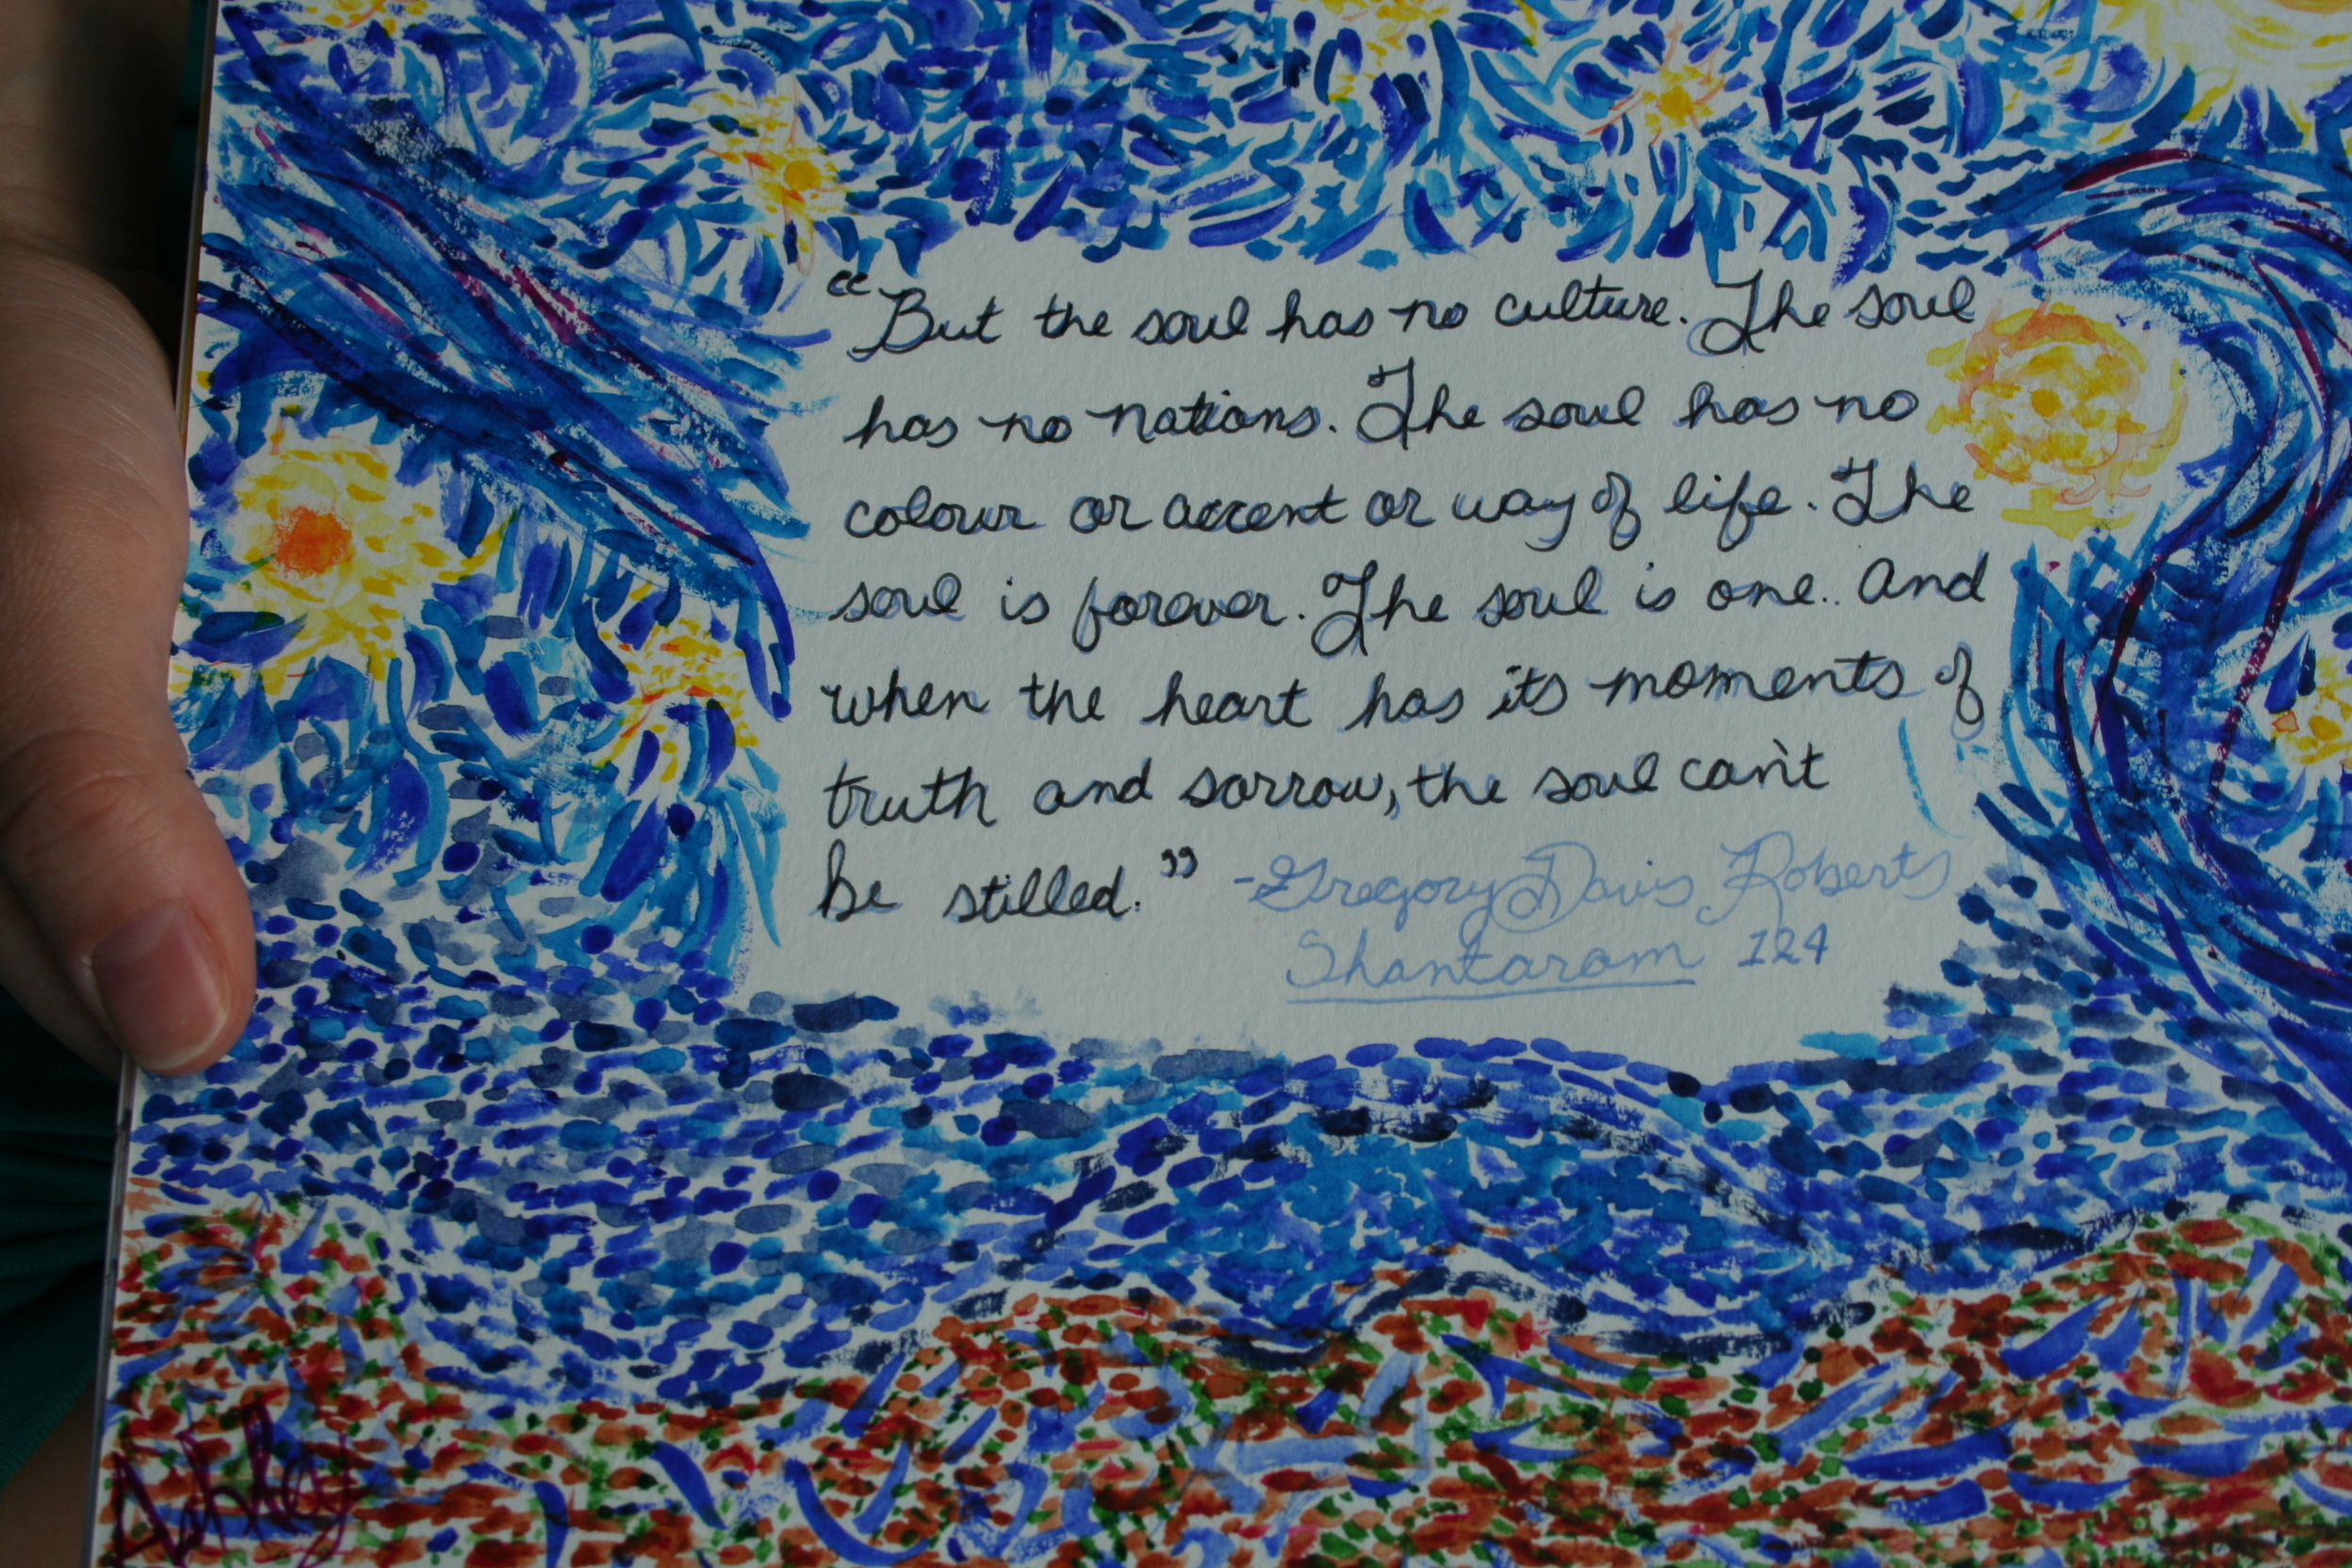 “But the soul has no culture. The soul
has no nations. The soul has no
colour or accent or way of life. The
soul is forever. The soul is one. And
when the heart has its moments of
truth and sorrow, the soul can't
be stilled.” -Gregory Davis Roberts
Shantaram 124
Ashley